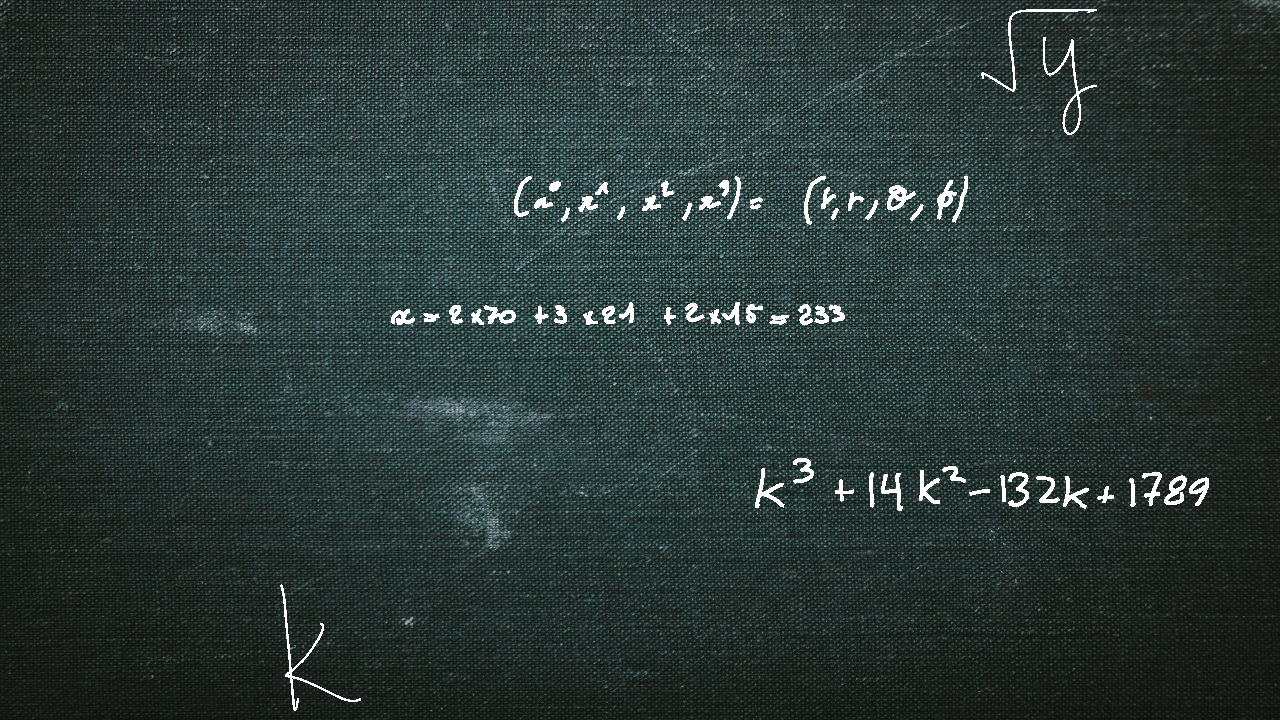 √y
(x⁰, x¹, x², x³) = (t, r, θ, φ)
x = 2 x 70 + 3 x 21 + 2 x 15 = 233
k³ + 14k² - 132k + 1789
k